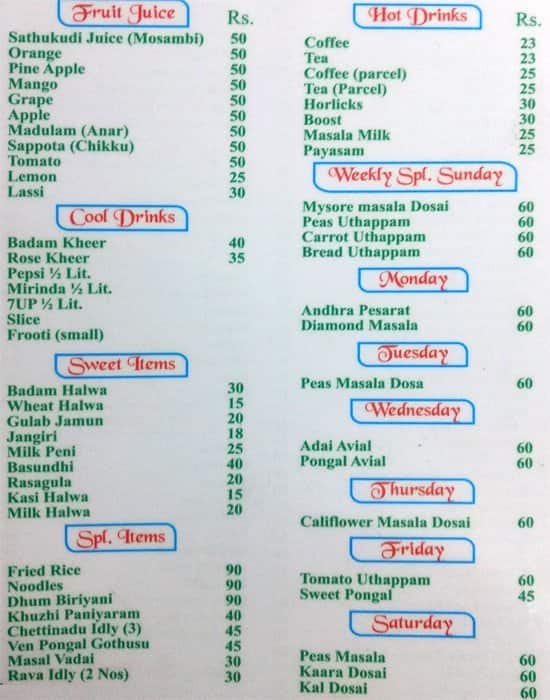 Fruit Juice Rs.
Sathukudi Juice (Mosambi) 50
Orange 50
Pine Apple 50
Mango 50
Grape 50
Apple 50
Madulam (Anar) 50
Sappota (Chikku) 50
Tomato 50
Lemon 25
Lassi 30
Cool Drinks
Badam Kheer 40
Rose Kheer 35
Pepsi ½ Lit.
Mirinda ½ Lit.
7UP ½ Lit.
Slice
Frooti (small)
Sweet Items
Badam Halwa 30
Wheat Halwa 15
Gulab Jamun 20
Jangiri 18
Milk Peni 25
Basundhi 40
Rasagula 20
Kasi Halwa 15
Milk Halwa 20
Spl. Items
Fried Rice 90
Noodles 90
Dhum Biriyani 90
Khuzhi Paniyaram 40
Chettinadu Idly (3) 45
Ven Pongal Gothusu 45
Masal Vadai 30
Rava Idly (2 Nos) 30
Hot Drinks Rs.
Coffee 23
Tea 23
Coffee (parcel) 25
Tea (Parcel) 25
Horlicks 30
Boost 30
Masala Milk 25
Payasam 25
Weekly Spl. Sunday
Mysore masala Dosai 60
Peas Uthappam 60
Carrot Uthappam 60
Bread Uthappam 60
Monday
Andhra Pesarat 60
Diamond Masala 60
Tuesday
Peas Masala Dosa 60
Wednesday
Adai Avial 60
Pongal Avial 60
Thursday
Califlower Masala Dosai 60
Friday
Tomato Uthappam 60
Sweet Pongal 45
Saturday
Peas Masala 60
Kaara Dosai 60
Kal Dosai 60